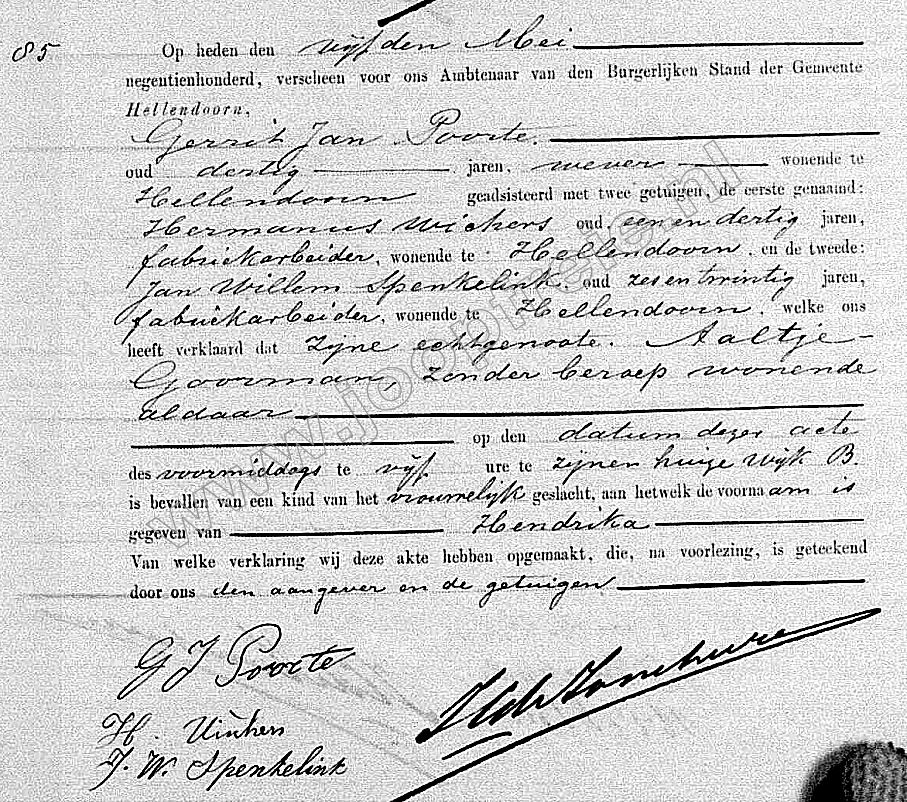 85
Op heden den vijfden Mei
negentienhonderd, verscheen voor ons Ambtenaar van den Burgerlijken Stand der Gemeente
Hellendoorn,
Gerrit Jan Poorte.
oud dertig jaren, wever wonende te
Hellendoorn geadsisteerd met twee getuigen, de eerste genaamd:
Hermanus Wichers oud een en dertig jaren,
fabriekarbeider, wonende te Hellendoorn, en de tweede:
Jan Willem Spenkelink, oud zes en twintig jaren,
fabriekarbeider, wonende te Hellendoorn, welke ons
heeft verklaard dat zijne echtgenoote, Aaltje
Goorman, zonder beroep wonende
aldaar
op den datum dezer acte
des voormiddags te vijf ure te zijnen huize Wijk B.
is bevallen van een kind van het vrouwelijk geslacht, aan hetwelk de voornaam is
gegeven van Hendrika
Van welke verklaring wij deze akte hebben opgemaakt, die, na voorlezing, is geteekend
door ons den aangever en de getuigen
G J Poorte
H.
J. W. Spenkelink